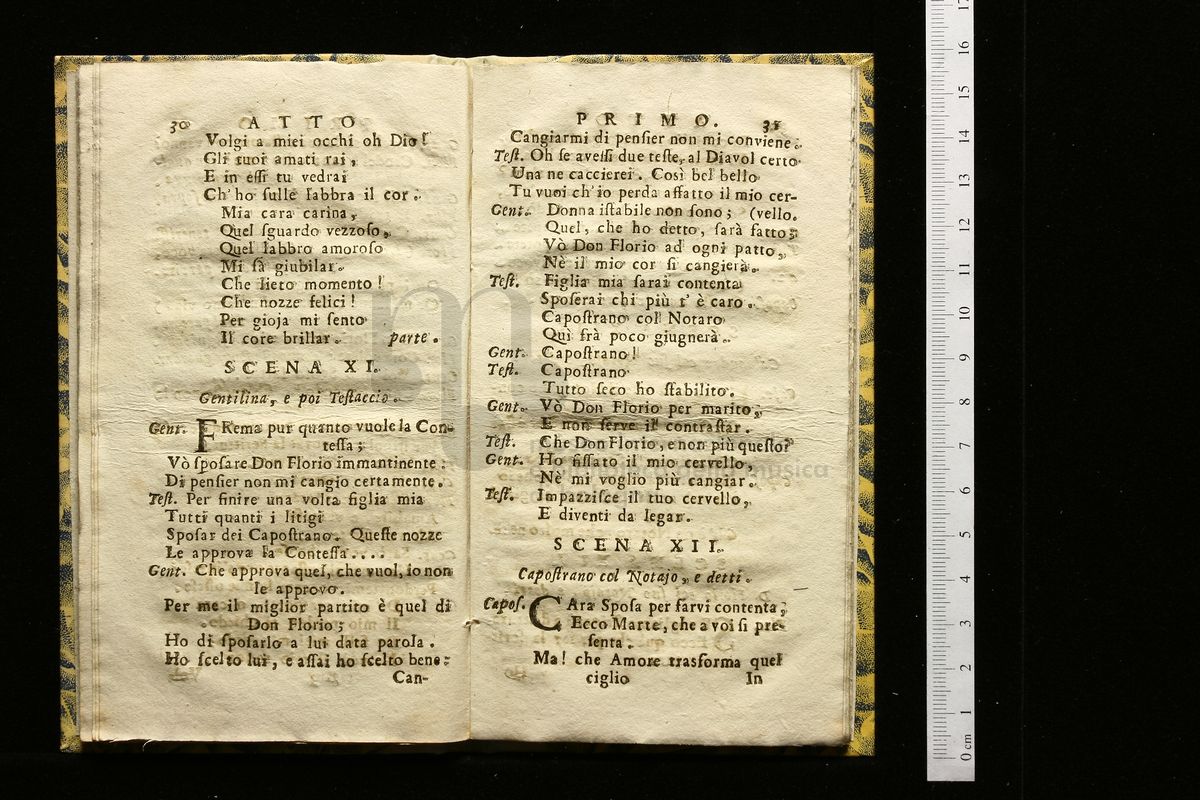 30 ATTO
Volgi a miei occhi oh Dio!
Gli tuoi amati rai,
E in eſſi tu vedrai
Ch'ho ſulle labbra il cor.
Mia cara carina,
Quel ſguardo vezzoſo,
Quel labbro amoroſo
Mi fà giubilar.
Che lieto momento!
Che nozze felici!
Per gioja mi ſento
Il core brillar. parte.
SCENA XI.
Gentilina, e poi Teſtaccio.
Gent. FRema pur quanto vuole la Con-
teſſa;
Vò ſpoſare Don Florio immantinente:
Di penſier non mi cangio certamente.
Teſt. Per finire una volta figlia mia
Tutti quanti i litigi
Spoſar dei Capoſtrano. Queſte nozze
Le approva la Conteſſa....
Gent. Che approva quel, che vuol, io non
le approvo.
Per me il miglior partito è quel di
Don Florio;
Ho di ſpoſarlo a lui data parola.
Ho ſcelto lui, e aſſai ho ſcelto bene:
Can-
PRIMO. 31
Cangiarmi di penſier non mi conviene.
Teſt. Oh ſe aveſſi due teſte, al Diavol certo
Una ne caccierei. Così bel bello
Tu vuoi ch'io perda affatto il mio cer-
Gent. Donna iſtabile non ſono; (vello.
Quel, che ho detto, ſarà fatto;
Vò Don Florio ad ogni patto,
Nè il mio cor ſi cangierà.
Teſt. Figlia mia ſarai contenta
Spoſerai chi più t' è caro.
Capoſtrano col Notaro
Quì frà poco giugnerà.
Gent. Capoſtrano!
Teſt. Capoſtrano
Tutto ſeco ho ſtabilito.
Gent. Vò Don Florio per marito,
E non ſerve il contraſtar.
Teſt. Che Don Florio, e non più queſto?
Gent. Ho fiſſato il mio cervello,
Nè mi voglio più cangiar.
Teſt. Impazziſce il tuo cervello,
E diventi da legar.
SCENA XII.
Capoſtrano col Notajo, e detti.
Capoſ. CAra Spoſa per farvi contenta,
Ecco Marte, che a voi ſi pre-
ſenta.
Ma! che Amore trasforma quel
ciglio In
0 cm 1 2 3 4 5 6 7 8 9 10 11 12 13 14 15 16 17